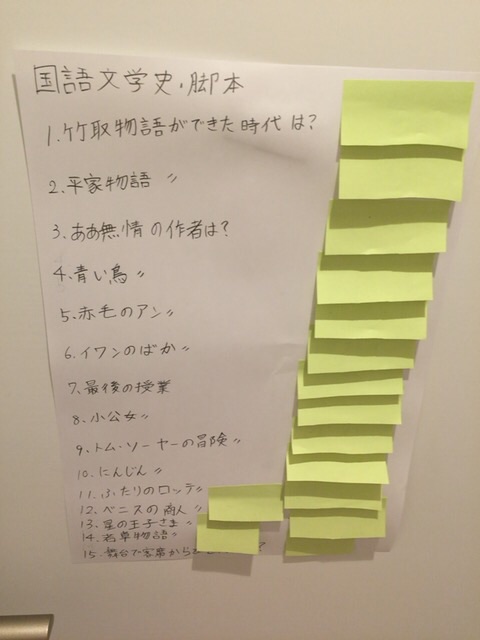 国語文学史・脚本
1.竹取物語ができた時代は?
2.平家物語 〃
3.ああ無情の作者は?
4.青い鳥 〃
5.赤毛のアン 〃
6.イワンのばか 〃
7.最後の授業
8.小公女 〃
9.トム・ソーヤーの冒険 〃
10.にんじん 〃
11.ふたりのロッテ 〃
12.ベニスの商人 〃
13.星の王子さま 〃
14.若草物語 〃
15.舞台で客席から ?